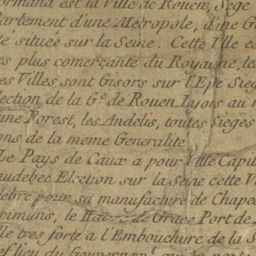 ormand est la Ville de Rouen, Siege
artement d'une Metropole, d'une G
te située sur la Seine. Cette Ville e
es plus comerçante du Royaume, le
es Villes sont Gisors sur l'Epe Sieg
lection de la G.te de Rouen Lajors au
ume Forest, les Andelis, toutes Sieges
ons de la meme Generalite
Le Pays de Caux a pour Ville Capit
eudebec Election sur la Seine cette V
lebre pour sa manufacture de Chape
pimuns, le Havre de Grace Port de
lle tres forte a l'Embouchure de la S